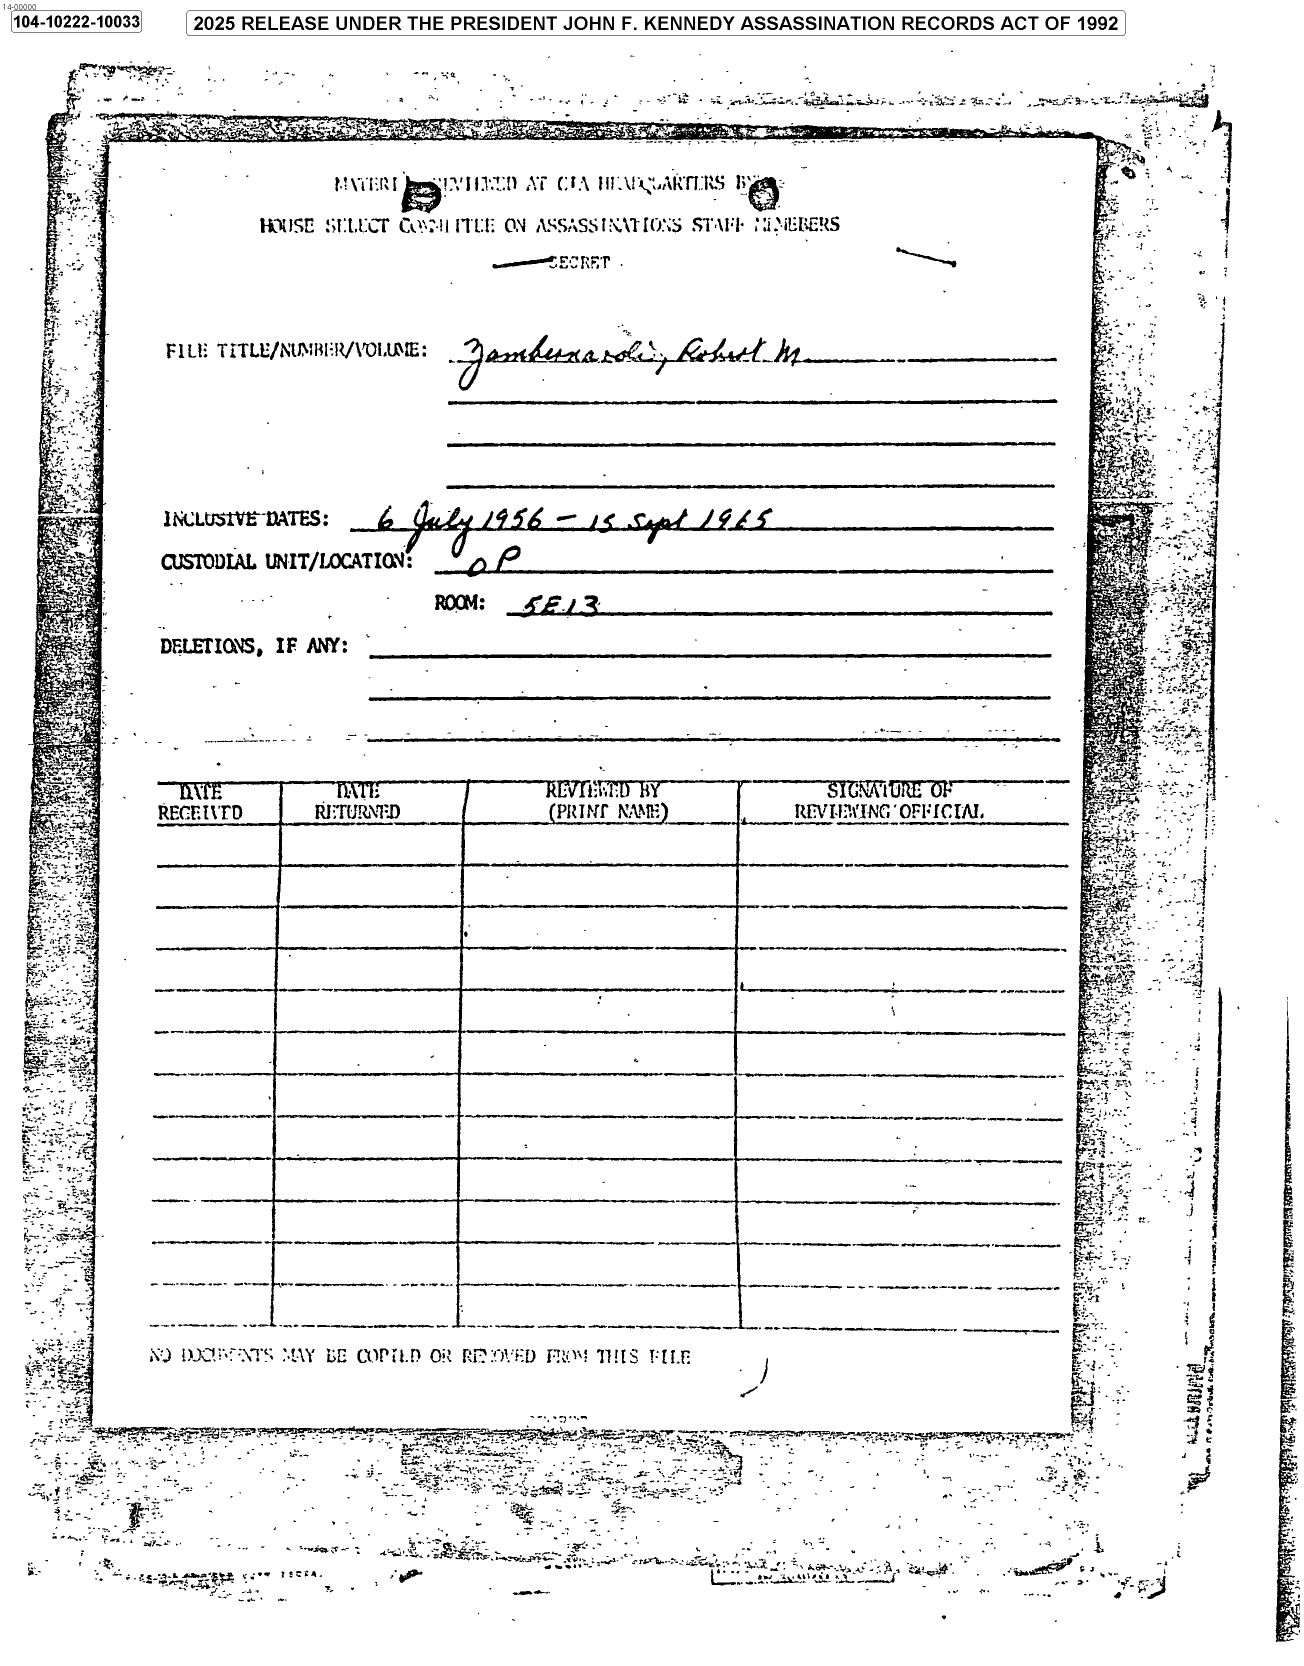 14-00000
104-10222-10033
2025 RELEASE UNDER THE PRESIDENT JOHN F. KENNEDY ASSASSINATION RECORDS ACT OF 1992
AT CIA HEADQUARTERS BY
HOUSE SELECT COMMITTEE ON ASSASSINATIONS STAFF MEMEBERS
SECRET
FILE TITLE/NUMBER/VOLUME: Zambernardi, Robert M.
INCLUSIVE DATES: 6 July 1956 - 15 Sept 1965
CUSTODIAL UNIT/LOCATION: OP
ROOM: 5E13
DELETIONS, IF ANY:
DATE RECEIVED
DATE RETURNED
REVIEWED BY (PRINT NAME)
SIGNATURE OF REVIEWING OFFICIAL
NO DOCUMENTS MAY BE COPIED OR REMOVED FROM THIS FILE